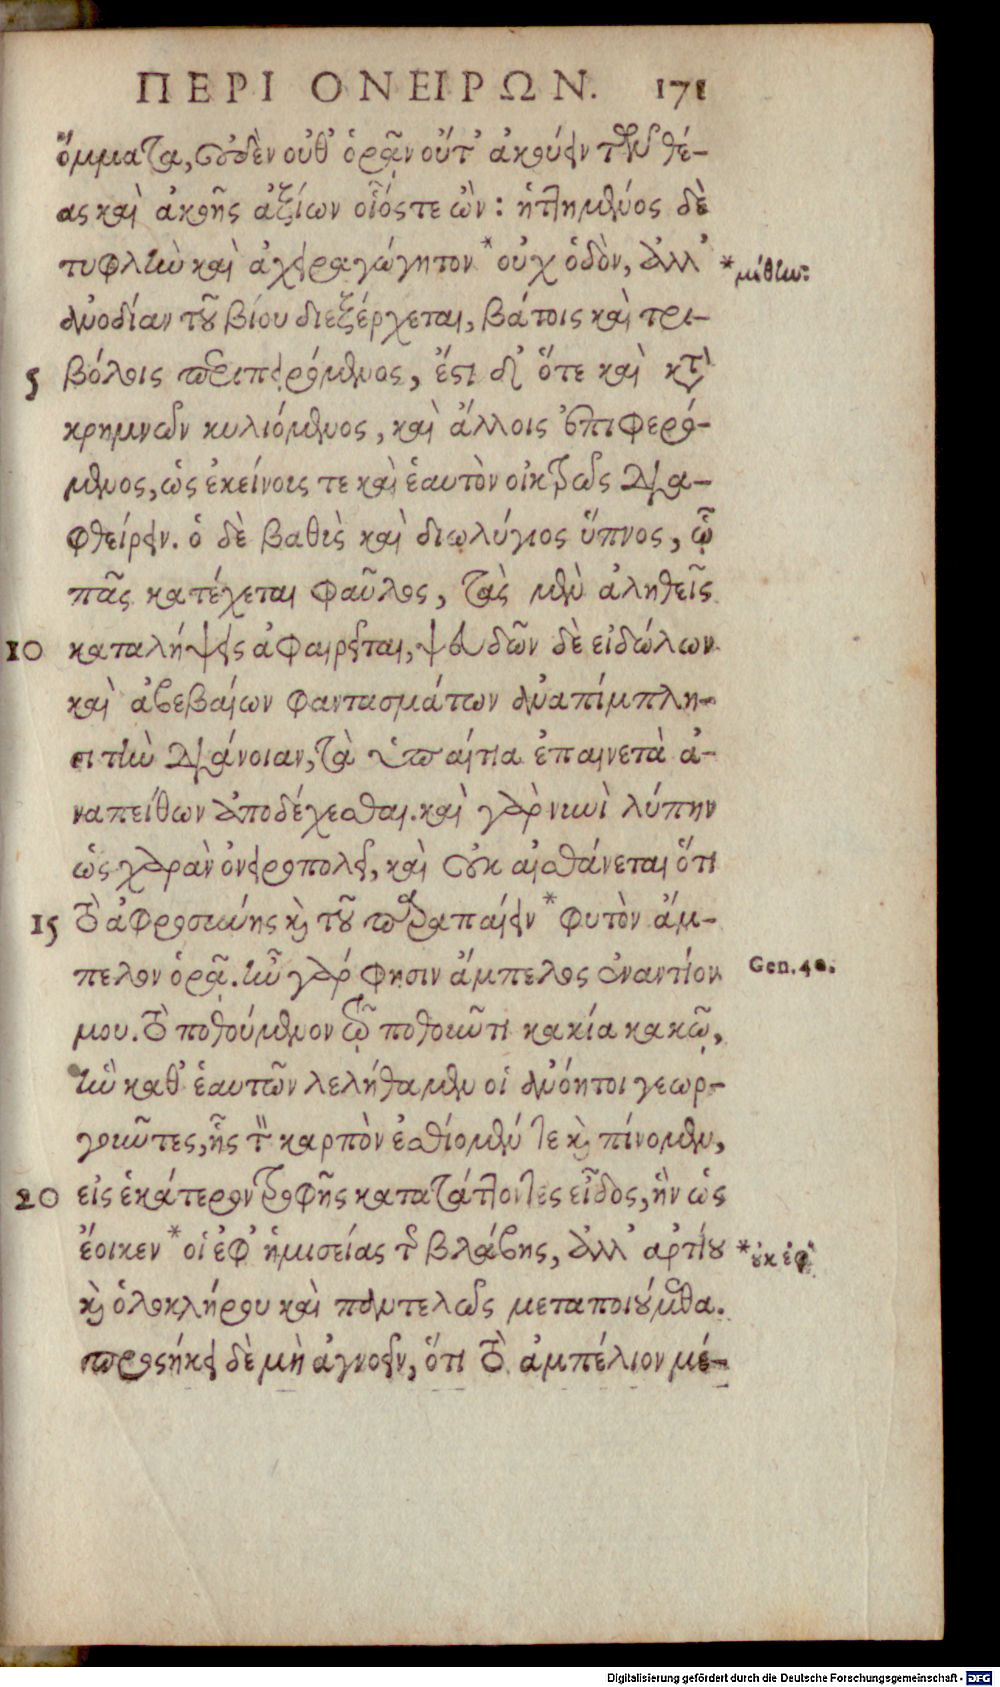 ΠΕΡΙ ΟΝΕΙΡΩΝ. 171
ὄμματα, οὐδὲν οὔθ' ὁρᾶν οὔτ' ἀκούειν τῶν θέ-
ας καὶ ἀκοῆς ἀξίων οἷός τε ὢν: ἡττημένος δὲ
τυφλὴν καὶ ἀχειραγώγητον * οὐχ ὁδὸν, ἀλλ' * μὲν:
ἀνοδίαν τοῦ βίου διεξέρχεται, βάτοις καὶ τρι-
5 βόλοις περιπειρόμενος, ἔστι δ' ὅτε καὶ κατὰ
κρημνῶν κυλιόμενος, καὶ ἄλλοις ἐπιφερό-
μενος, ὡς ἐκείνους τε καὶ ἑαυτὸν οἰκτρῶς δια-
φθείρειν. ὁ δὲ βαθὺς καὶ διωλύγιος ὕπνος, ᾧ
πᾶς κατέχεται φαῦλος, τὰς μὲν ἀληθεῖς
10 καταλήψεις ἀφαιρεῖται, ψευδῶν δὲ εἰδώλων
καὶ ἀβεβαίων φαντασμάτων ἀναπίμπλη-
σι τὴν διάνοιαν, τὰ ὑπαίτια ἐπαινετὰ ἀ-
ναπείθων ἀποδέχεσθαι. καὶ γὰρ νυνὶ λύπην
ὡς χαρὰν ὀνειροπολεῖ, καὶ οὐκ αἰσθάνεται ὅτι
15 τὸ ἀφροσύνης καὶ τοῦ παραπαίειν * φυτὸν ἄμ-
πελον ὁρᾷ. ἦν γάρ φησιν ἄμπελος ἐναντίον Gen. 40.
μου. τὸ ποθούμενον τῷ ποθοῦντι κακία κακῷ,
ἣν καθ' ἑαυτῶν λελήθαμεν οἱ ἀνόητοι γεωρ-
γοῦντες, ἧς τὸν καρπὸν ἐσθίομέν τε καὶ πίνομεν,
20 εἰς ἑκάτερον τροφῆς κατατάττοντες εἶδος, ἣν ὡς
ἔοικεν * οἱ ἐφ' ἡμισείας τῆς βλάβης, ἀλλ' ἀρτίου * οὐκ ἐφ'
καὶ ὁλοκλήρου καὶ παντελῶς μεταποιούμεθα.
προσήκει δὲ μὴ ἀγνοεῖν, ὅτι τὸ ἀμπέλιον μέ-
Digitalisierung gefördert durch die Deutsche Forschungsgemeinschaft - DFG